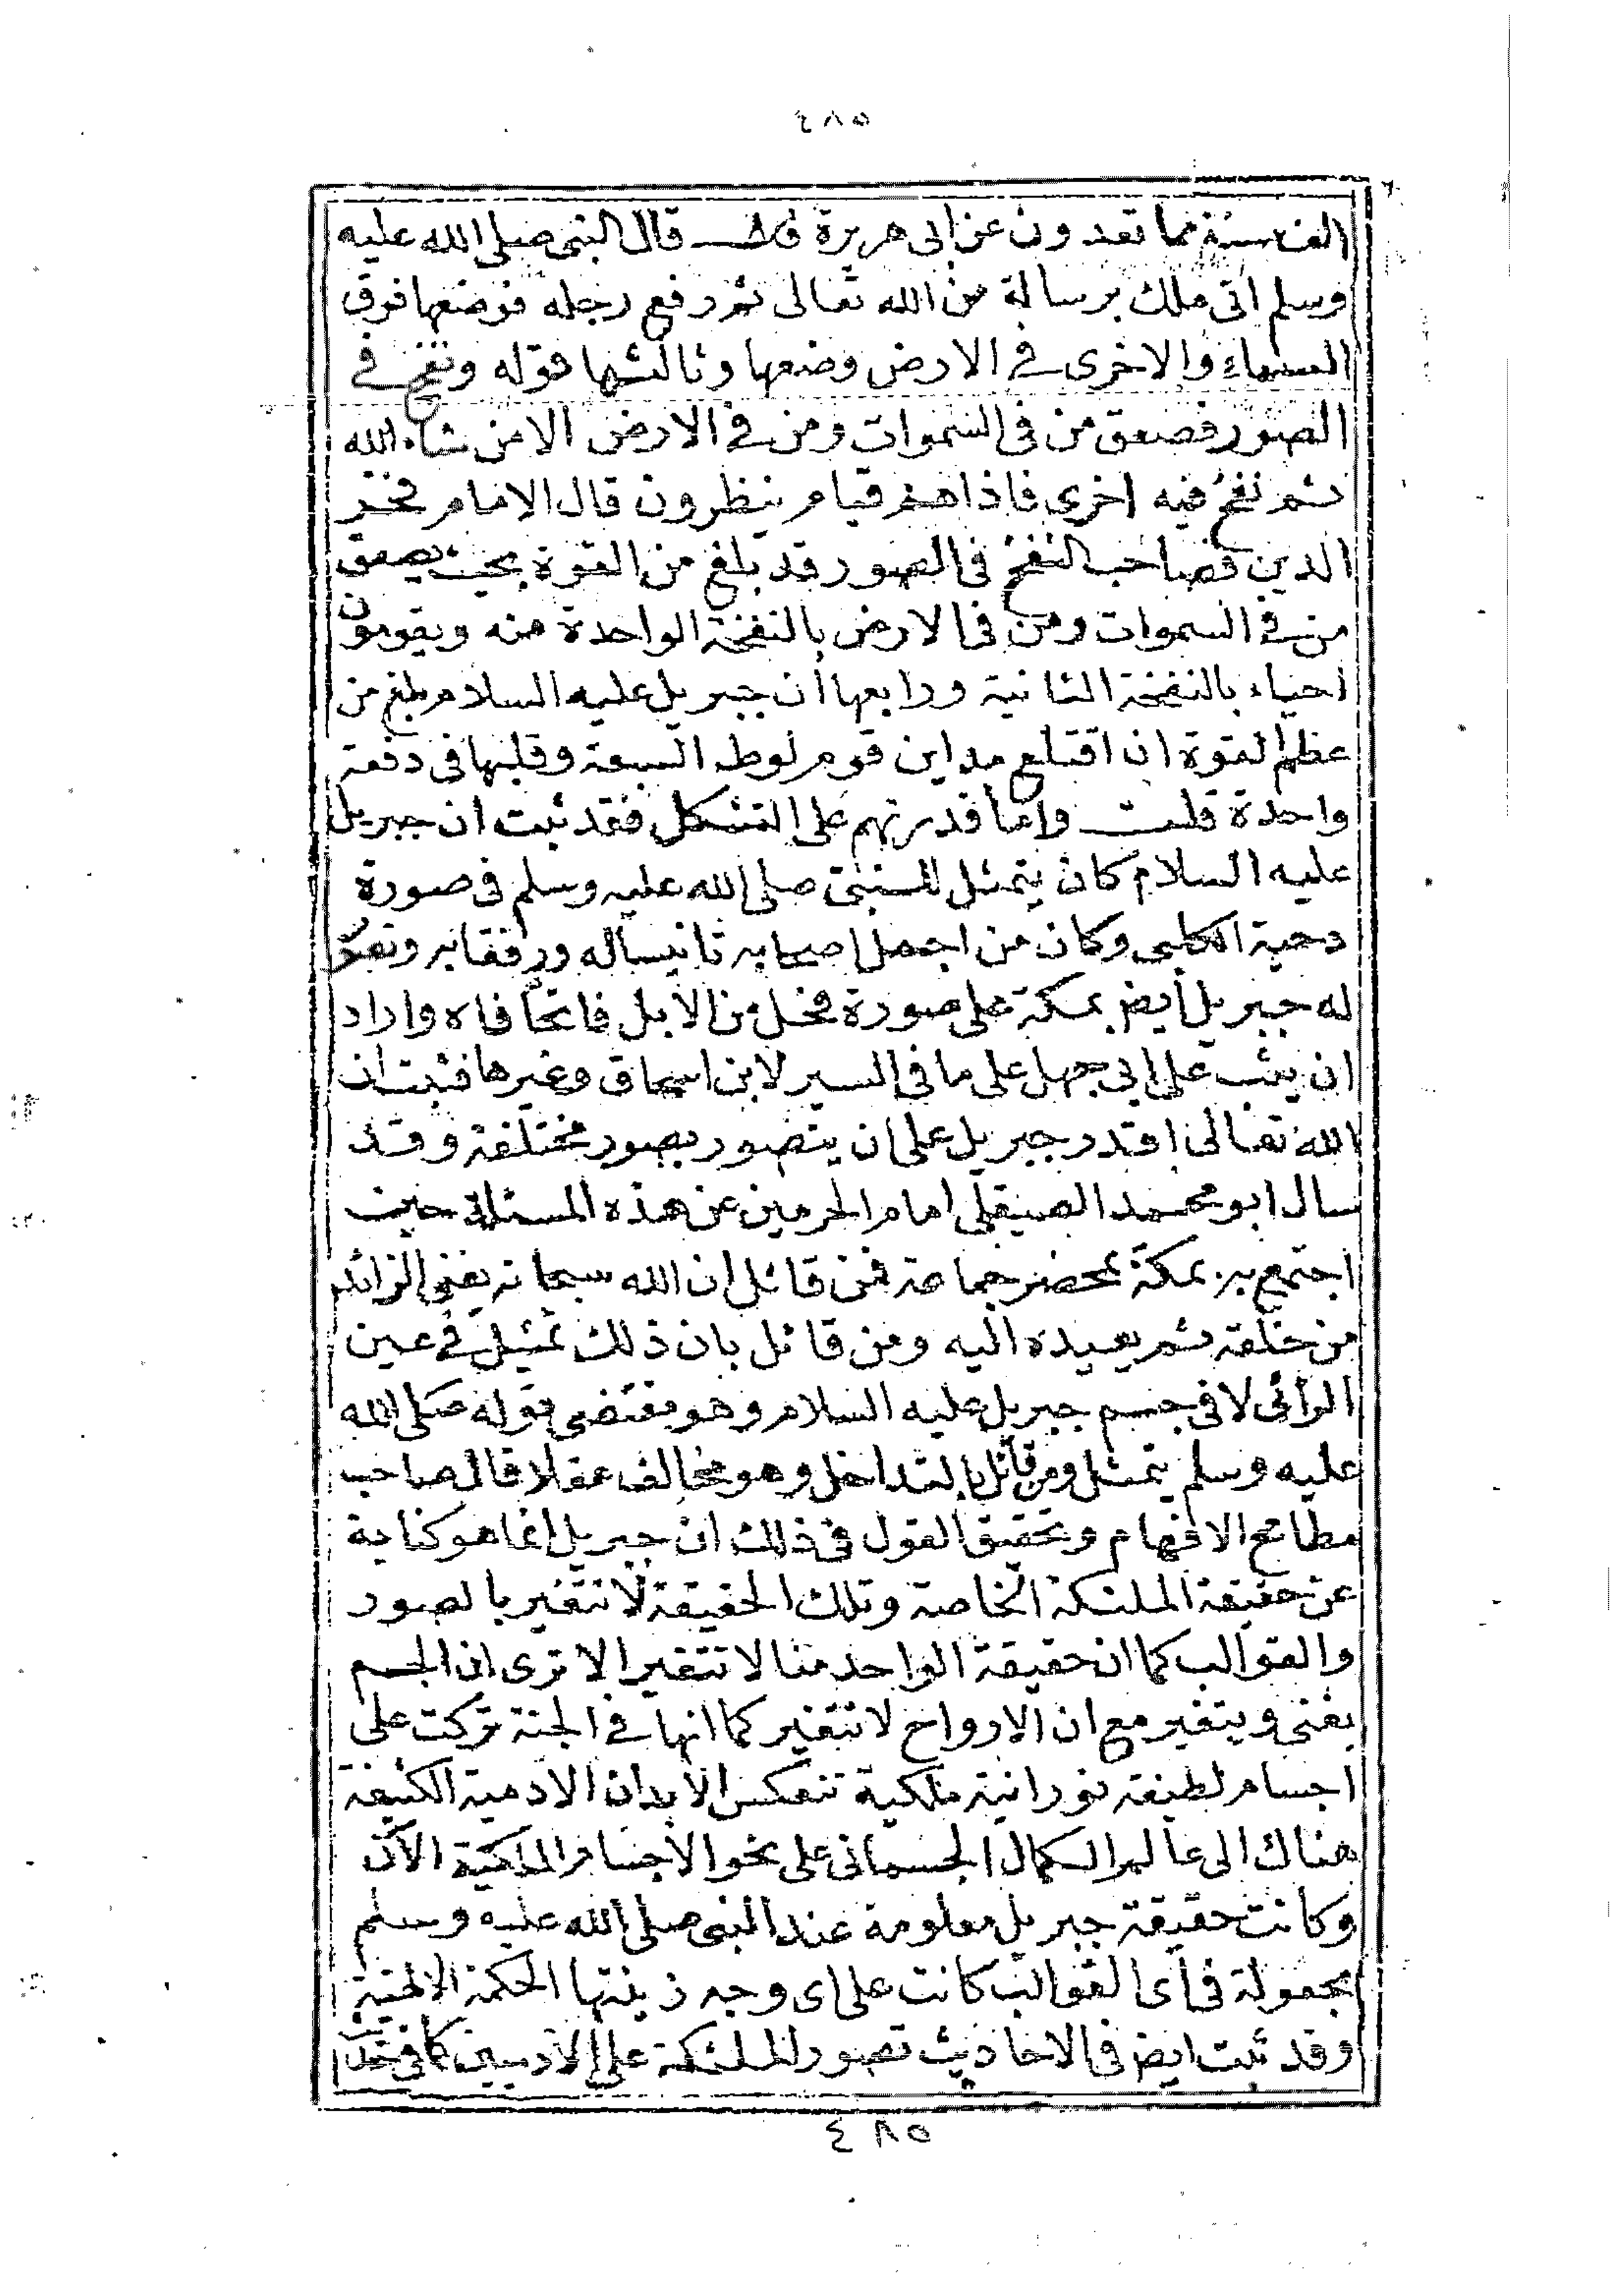 ٤٨٥
الف سنة مما تعدون عن ابى هريرة قال قال النبى صلى الله عليه
وسلم اتى ملك برسالة من الله تعالى ثم رفع رجله فوضعها فوق
السماء والاخرى فى الارض وضعها وثالثها قوله ونفخ فى
الصور فصعق من فى السموات ومن فى الارض الا من شاء الله
ثم نفخ فيه اخرى فاذا هم قيام ينظرون قال الامام فخر
الدين فصاحب النفخ فى الصور قد بلغ من القوة بحيث يصعق
من فى السموات ومن فى الارض بالنفخة الواحدة منه ويقومون
احياء بالنفخة الثانية ورابعها أن جبريل عليه السلام بلغ من
عظم القوة ان اقتلع مداين قوم لوط السبعة وقلبها فى دفعة
واحدة قلت واما قدرتهم على التشكل فقد ثبت ان جبريل
عليه السلام كان يتمثل للنبى صلى الله عليه وسلم فى صورة
دحية الكلبى وكان من اجمل اصحابه تانيسا له ورفقا به وتصور
له جبريل أيض بمكة على صورة فحل من الابل فاتحا فاه واراد
ان يثب على ابى جهل على ما فى السير لابن اسحاق وغيرها فثبت ان
الله تعالى اقدر جبريل على ان يتصور بصور مختلفة وقد
سال ابو محمد الصيقلى امام الحرمين عن هذه المسئلة حيث
اجتمع به بمكة بمحضر جماعة فمن قائل ان الله سبحانه يفنى الزائد
من خلقه ثم يعيده اليه ومن قائل بان ذلك تمثيل فى عين
الرأئى لا فى جسم جبريل عليه السلام وهو مقتضى قوله صلى الله
عليه وسلم يتمثل ومن قائل بالتداخل وهو مخالف عقلا قال صاحب
مطامح الافهام وتحقيق القول فى ذلك ان جبريل انما هو كناية
عن حقيقة الملئكة الخاصة وتلك الحقيقة لا تتغير بالصور
والقوالب كما ان حقيقة الواحد منا لا تتغير الا ترى ان الجسم
يفنى ويتغير مع ان الارواح لا تتغير كما انها فى الجنة تركت على
اجسام لطيفة نورانية ملكية تنعكس الابدان الادمية الكثيفة
هناك الى عالم الكمال الجسمانى على نحو الاجسام الملكية الآن
وكانت حقيقة جبريل معلومة عند النبى صلى الله عليه وسلم
مجعولة فى أى القوالب كانت على اى وجه زينتها الحكمة الالهية
وقد ثبت ايض فى الاحاديث تصور الملئكة على الادميين كما فى
٤٨٥